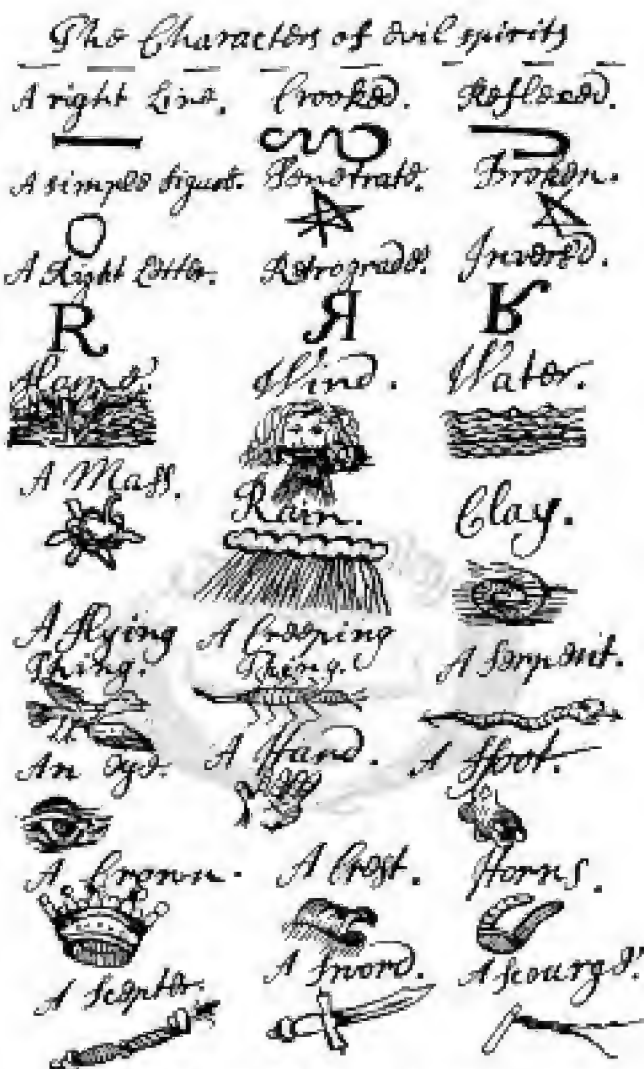 The Characters of evil spirits
A right Line. Crooked. Reflexed.
A simple figure. Penetrate. Broken.
A Right Letter. Retrograde. Inver'd.
R R R
Flame. Wind. Water.
A Mass. Rain. Clay.
A flying Thing. A Creeping Thing. A Serpent.
An Eye. A Hand. A ffoot.
A Crown. A Crest. Horns.
A Scepter. A Sword. A Scourge.